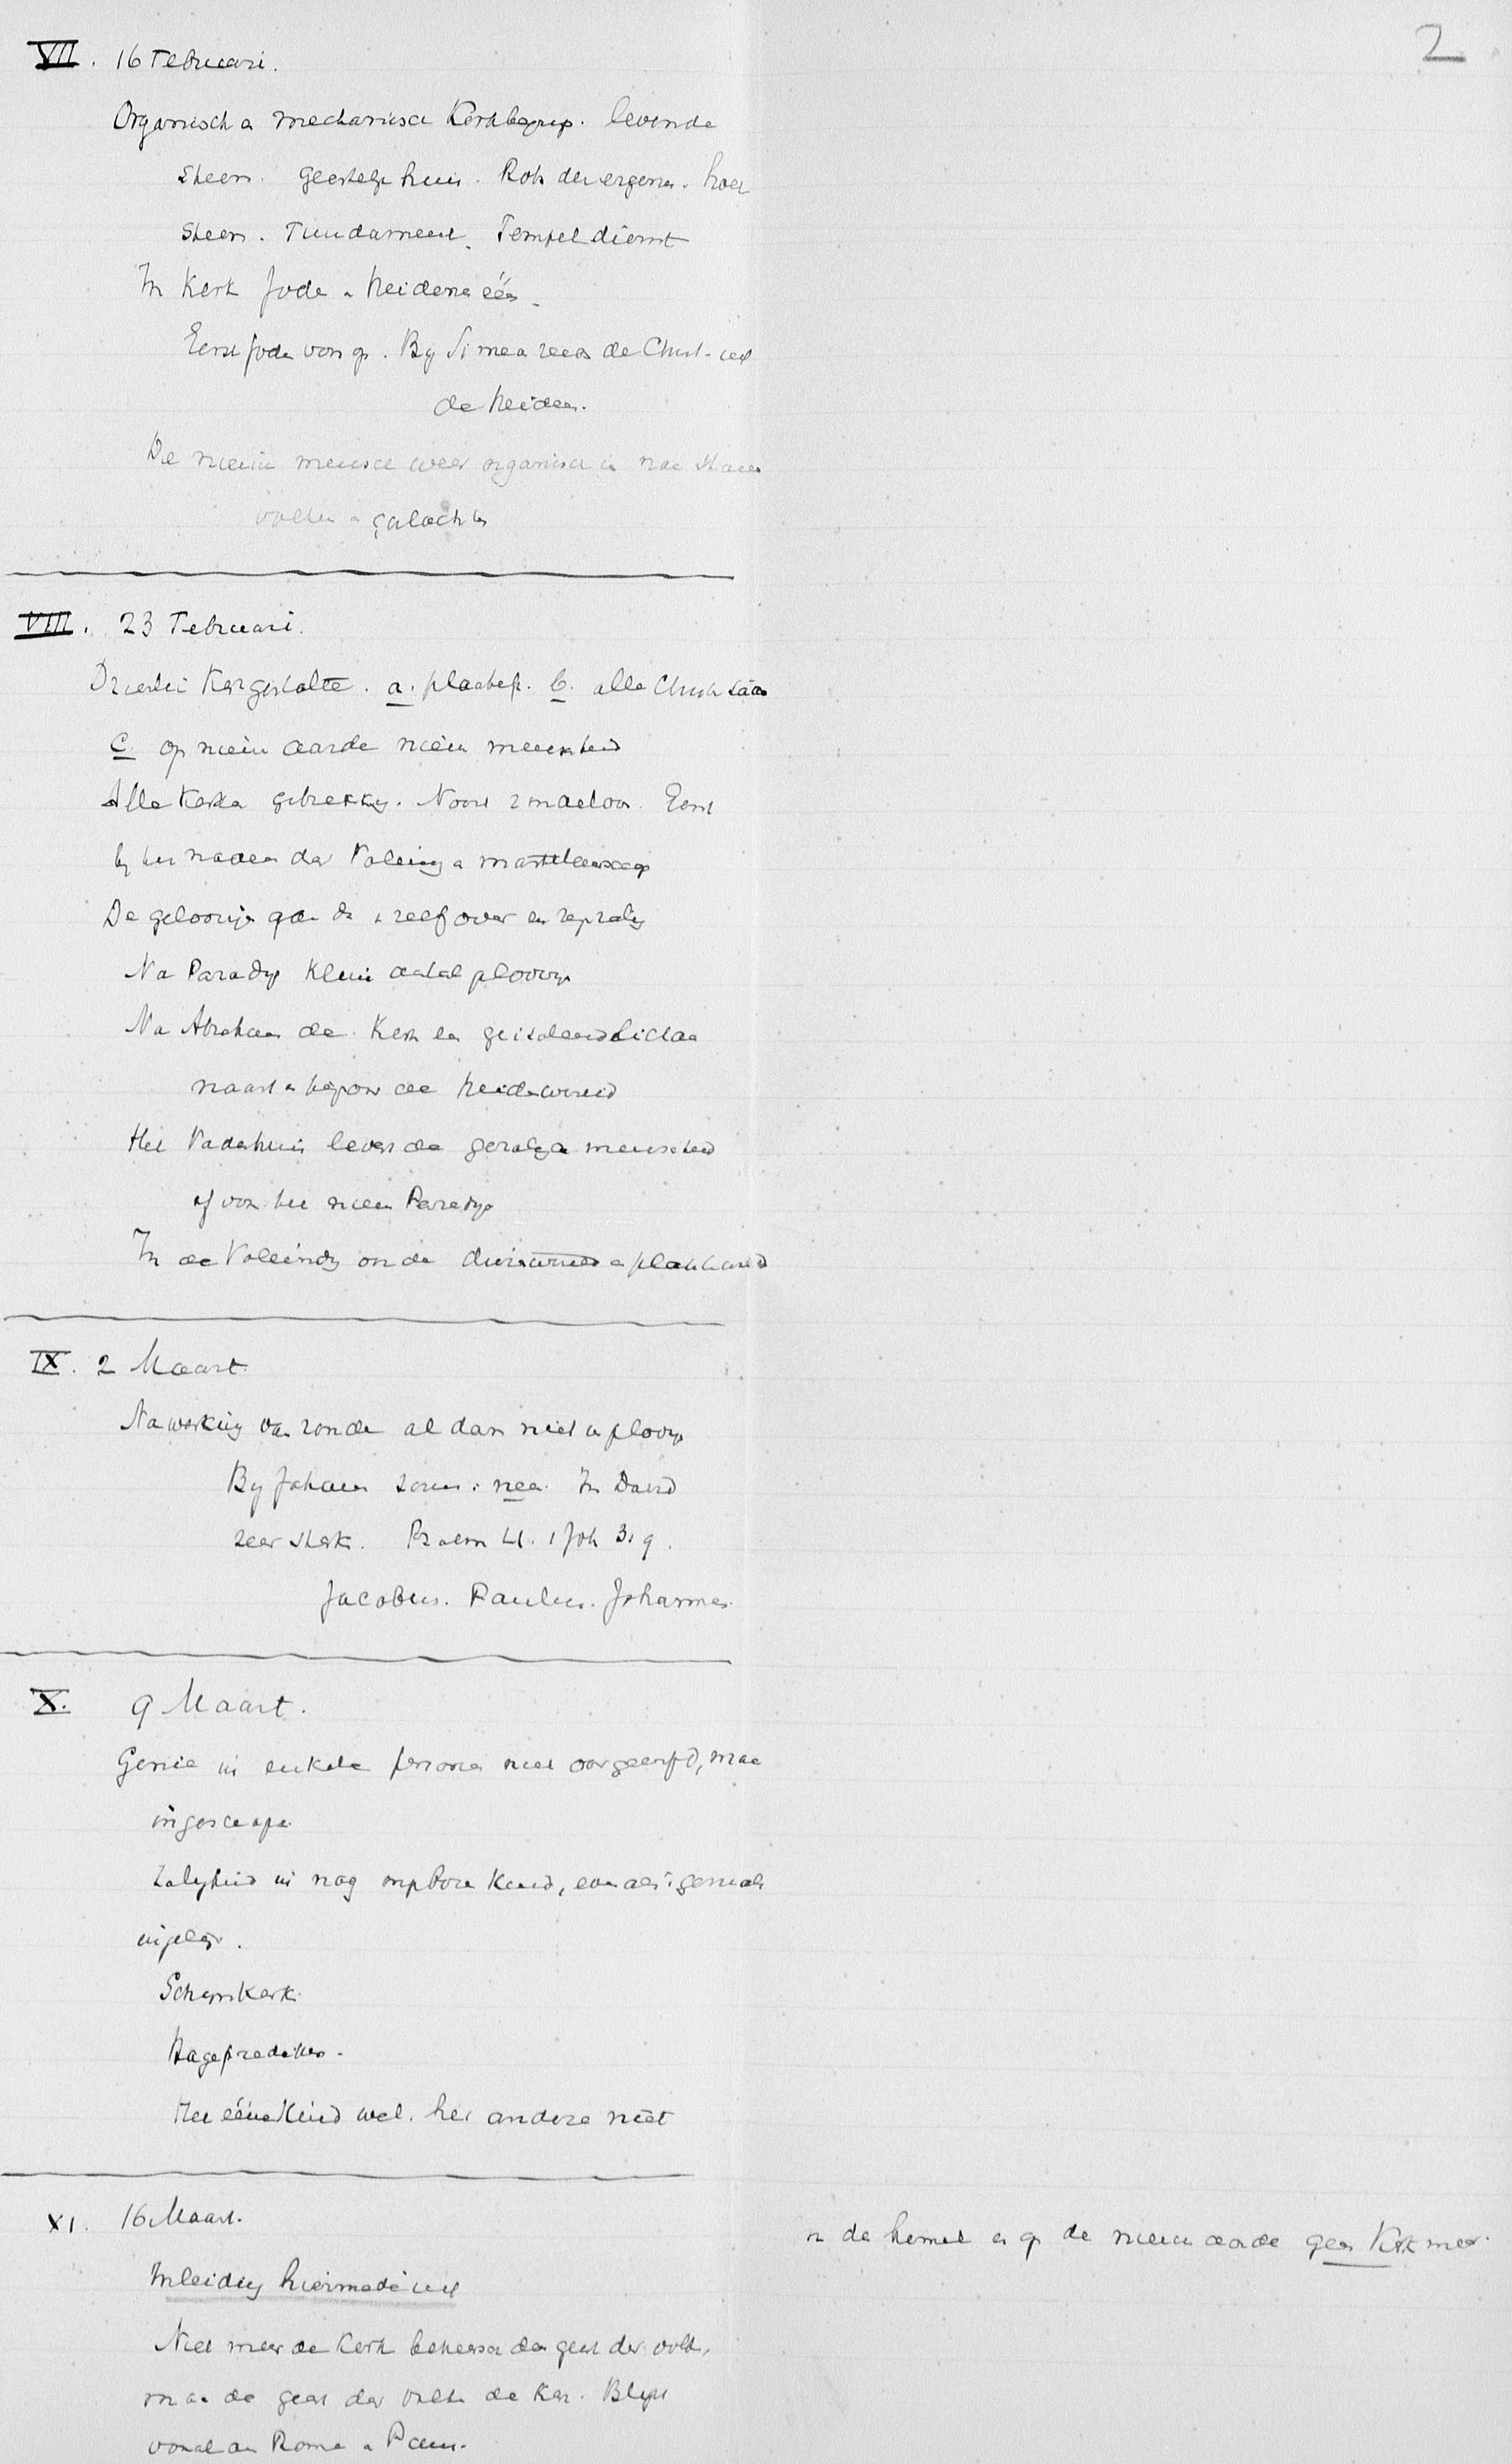 2
VII. 16 Februari.
Organisch a mechanisch Kerkbegrip. levende
Steen. Geestelijk huis. Rots der ergernis. hoek
Steen. Fundament. Tempeldienst
In Kerk Jode a heidene één.
Eerst Jode voorop. By Simea reeds de Christ. uit
de heiden.
De nieuw mensch weer organisch in
volken a geslachten
VIII. 23 Februari.
Drieërlei Kergestalte. a. plaatsel. b. alle Christ
C. op nieuw aarde nieuw menschheid
Alle Kerken gebrekkig. Nooit smadeloos. Eerst
by het naderen der Voleindig a martelaarschap
De geloovige gaan zelf over en
Na Paradys Klein aantal geloovige
Na Abraham de Kerk een geïsoleerd lichaam
naast a tegenover de heidewereld
Het Vaderhuis levert de gezalige menschheid
af voor het nieuw Paradys
In de Voleindig onde
IX. 2 Maart.
Nawerking van zonde al dan niet in geloovige
By Johannes soms: nee. In David
zeer sterk. Psalm 51. 1 Joh 3:9.
Jacobus. Paulus. Johannes.
X. 9 Maart.
Genie in enkele persone niet overgeerfd, maar
ingeschape
Zaligheid in nog ongebore Kind, evenals geniale
ingelegd.
Schynkerk.
Hagepredikers.
Het ééne Kind wel. het andere niet
XI. 16 Maart.
Inleiding hiermede uit
Niet meer de Kerk beheerscht den geest der volk,
maar de geest der volk de Ker. Blykt
vooral aan Rome a Paus.
in de hemel en op de nieuw aarde geen Kerk meer.